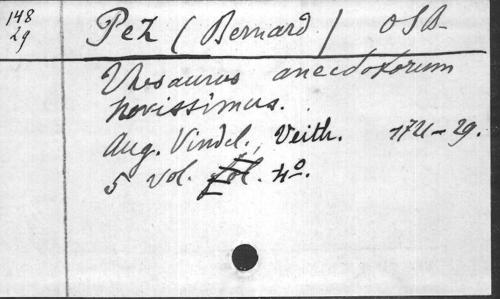 148
29
Pez (Bernard) OSB.
Thesaurus anecdotorum
novissimus.
Aug. Vindel., Veith. 1721-29.
5 vol. fol. 4º.